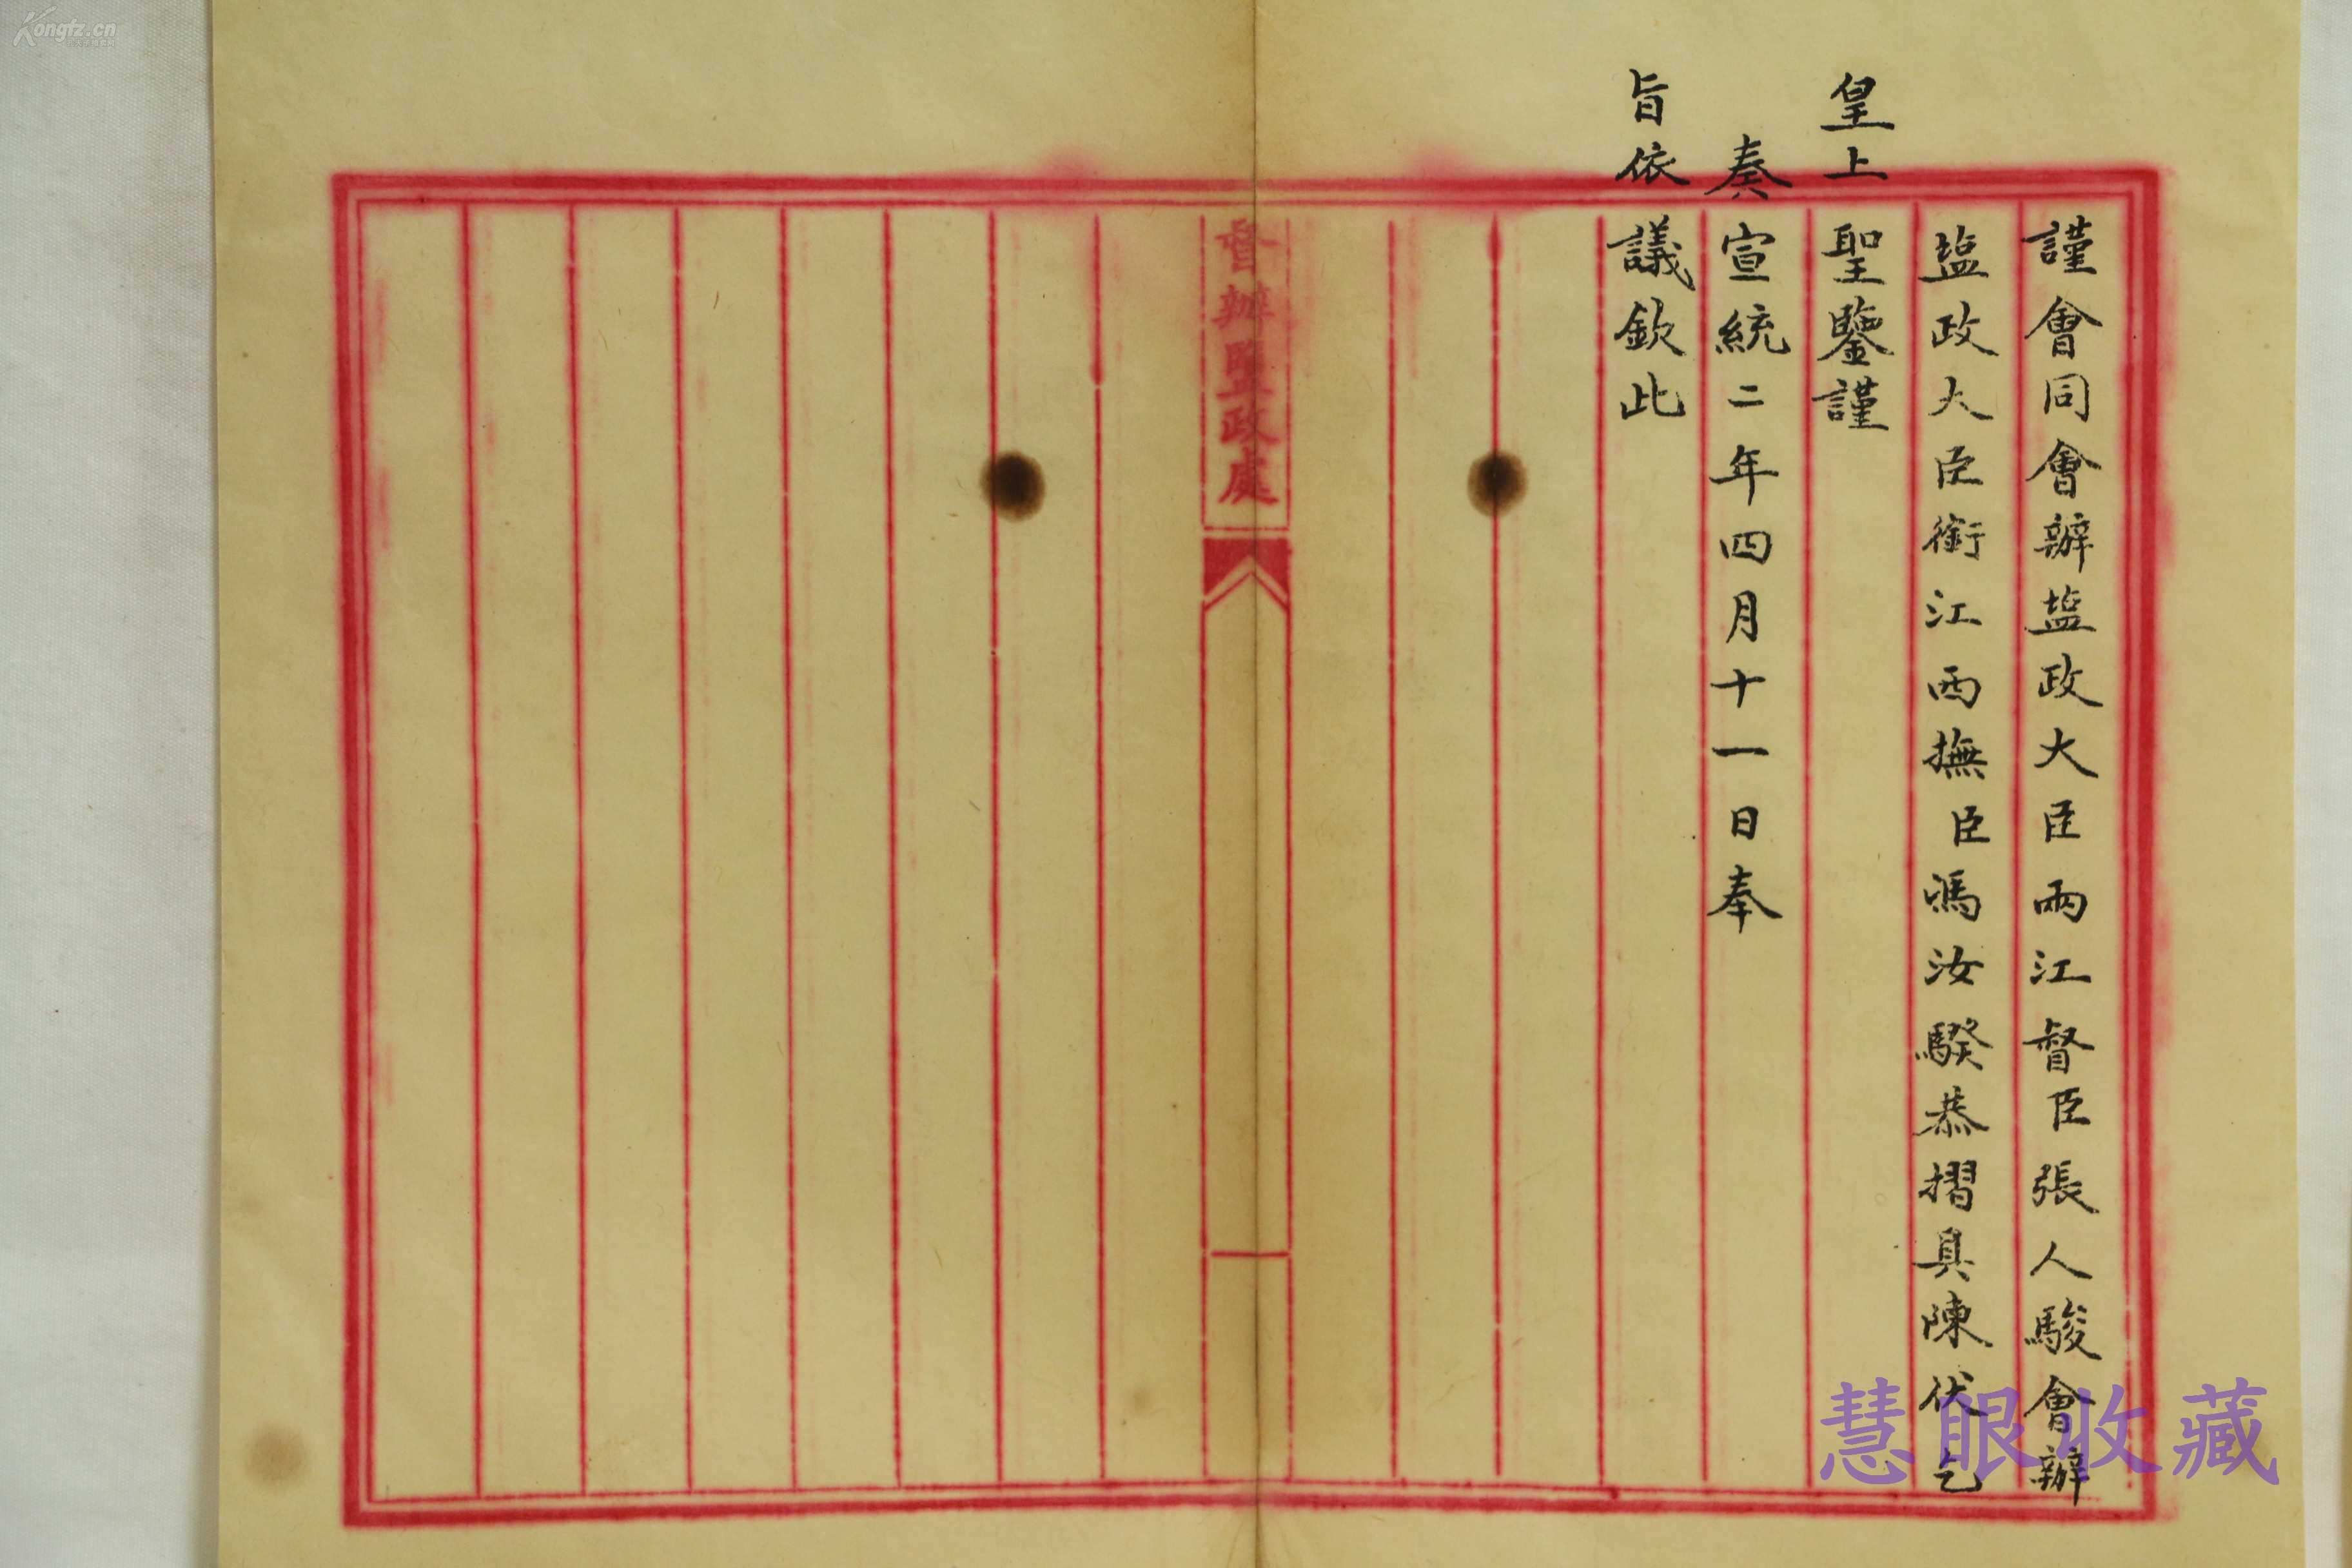 謹會同會辦塩政大臣兩江督臣張人駿會辦
塩政大臣銜江西撫臣馮汝騤恭摺具陳伏乞
皇上聖鑒謹
奏宣統二年四月十一日奉
旨依議欽此
督辦鹽政處
慧眼收藏
Kongfz.cn